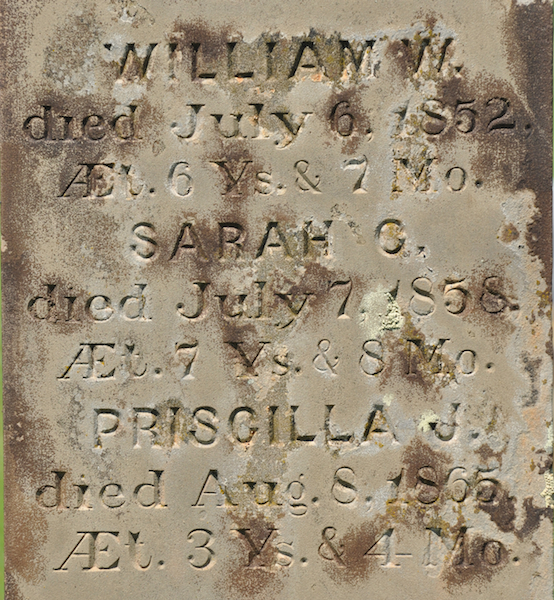 WILLIAM W.
died July 6, 1852.
Æt. 6 Ys. & 7 Mo.
SARAH G.
died July 7, 1858.
Æt. 7 Ys. & 8 Mo.
PRISCILLA J.
died Aug. 8, 1865.
Æt. 3 Ys. & 4 Mo.